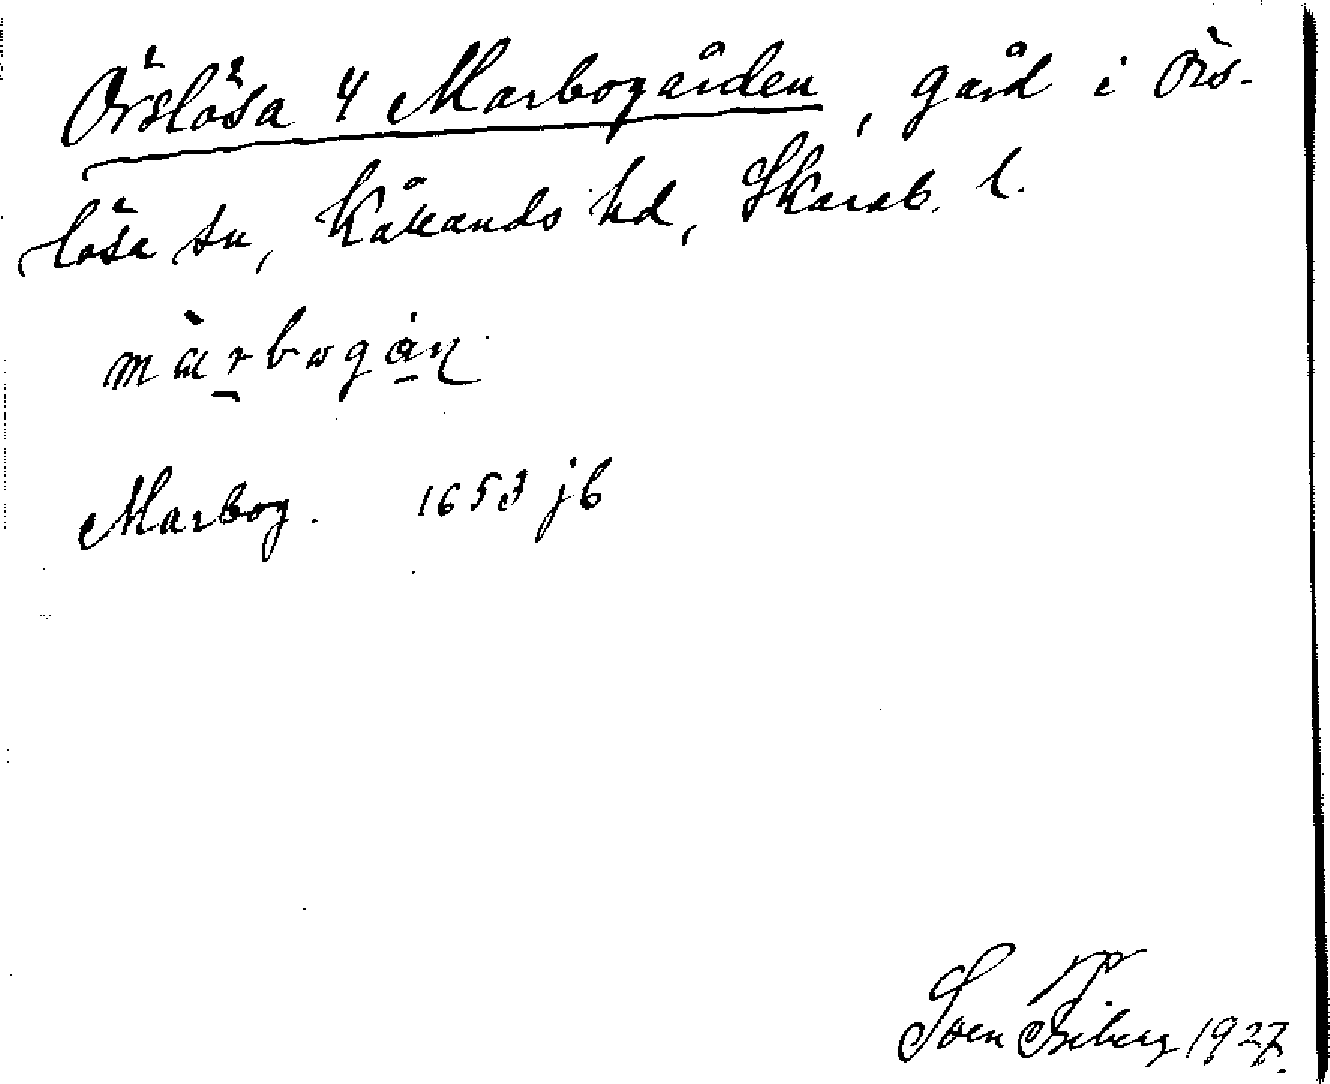 Örslösa 4 Marbogården, gård i Örs-
lösa sn, Kållands hd, Skarab. l.
màrbogán
Marbog. 1653 jb
Sven Friberg 1927.